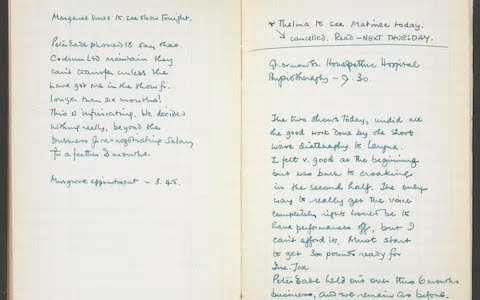 Margaret Vines to see show tonight.
Peter Eade phoned to say that
Codron Ltd maintain they
can't transfer unless the
have got me in the show for
longer than six months!
This is infuriating. We decided
nothing really, beyond the
business of re-negotiating salary
for a further 3 months.
Musgrove appointment - 3.45.
* Thelma to see Matinee today.
cancelled. Read - NEXT THURSDAY.
Gt. Ormond St. Homeopathic Hospital
Physiotherapy - 9.30.
The two shows today, undid all
the good work done by the short
wave diathermy to larynx.
I felt v. good at the beginning
but was back to croaking
in the second half. The only
way to really get the voice
completely right would be to
have performances off, but I
can't afford it. Must start
to get 300 pounds ready for
Inc. Tax
Peter Eade held out over this 6 months
business, and we remain as before,